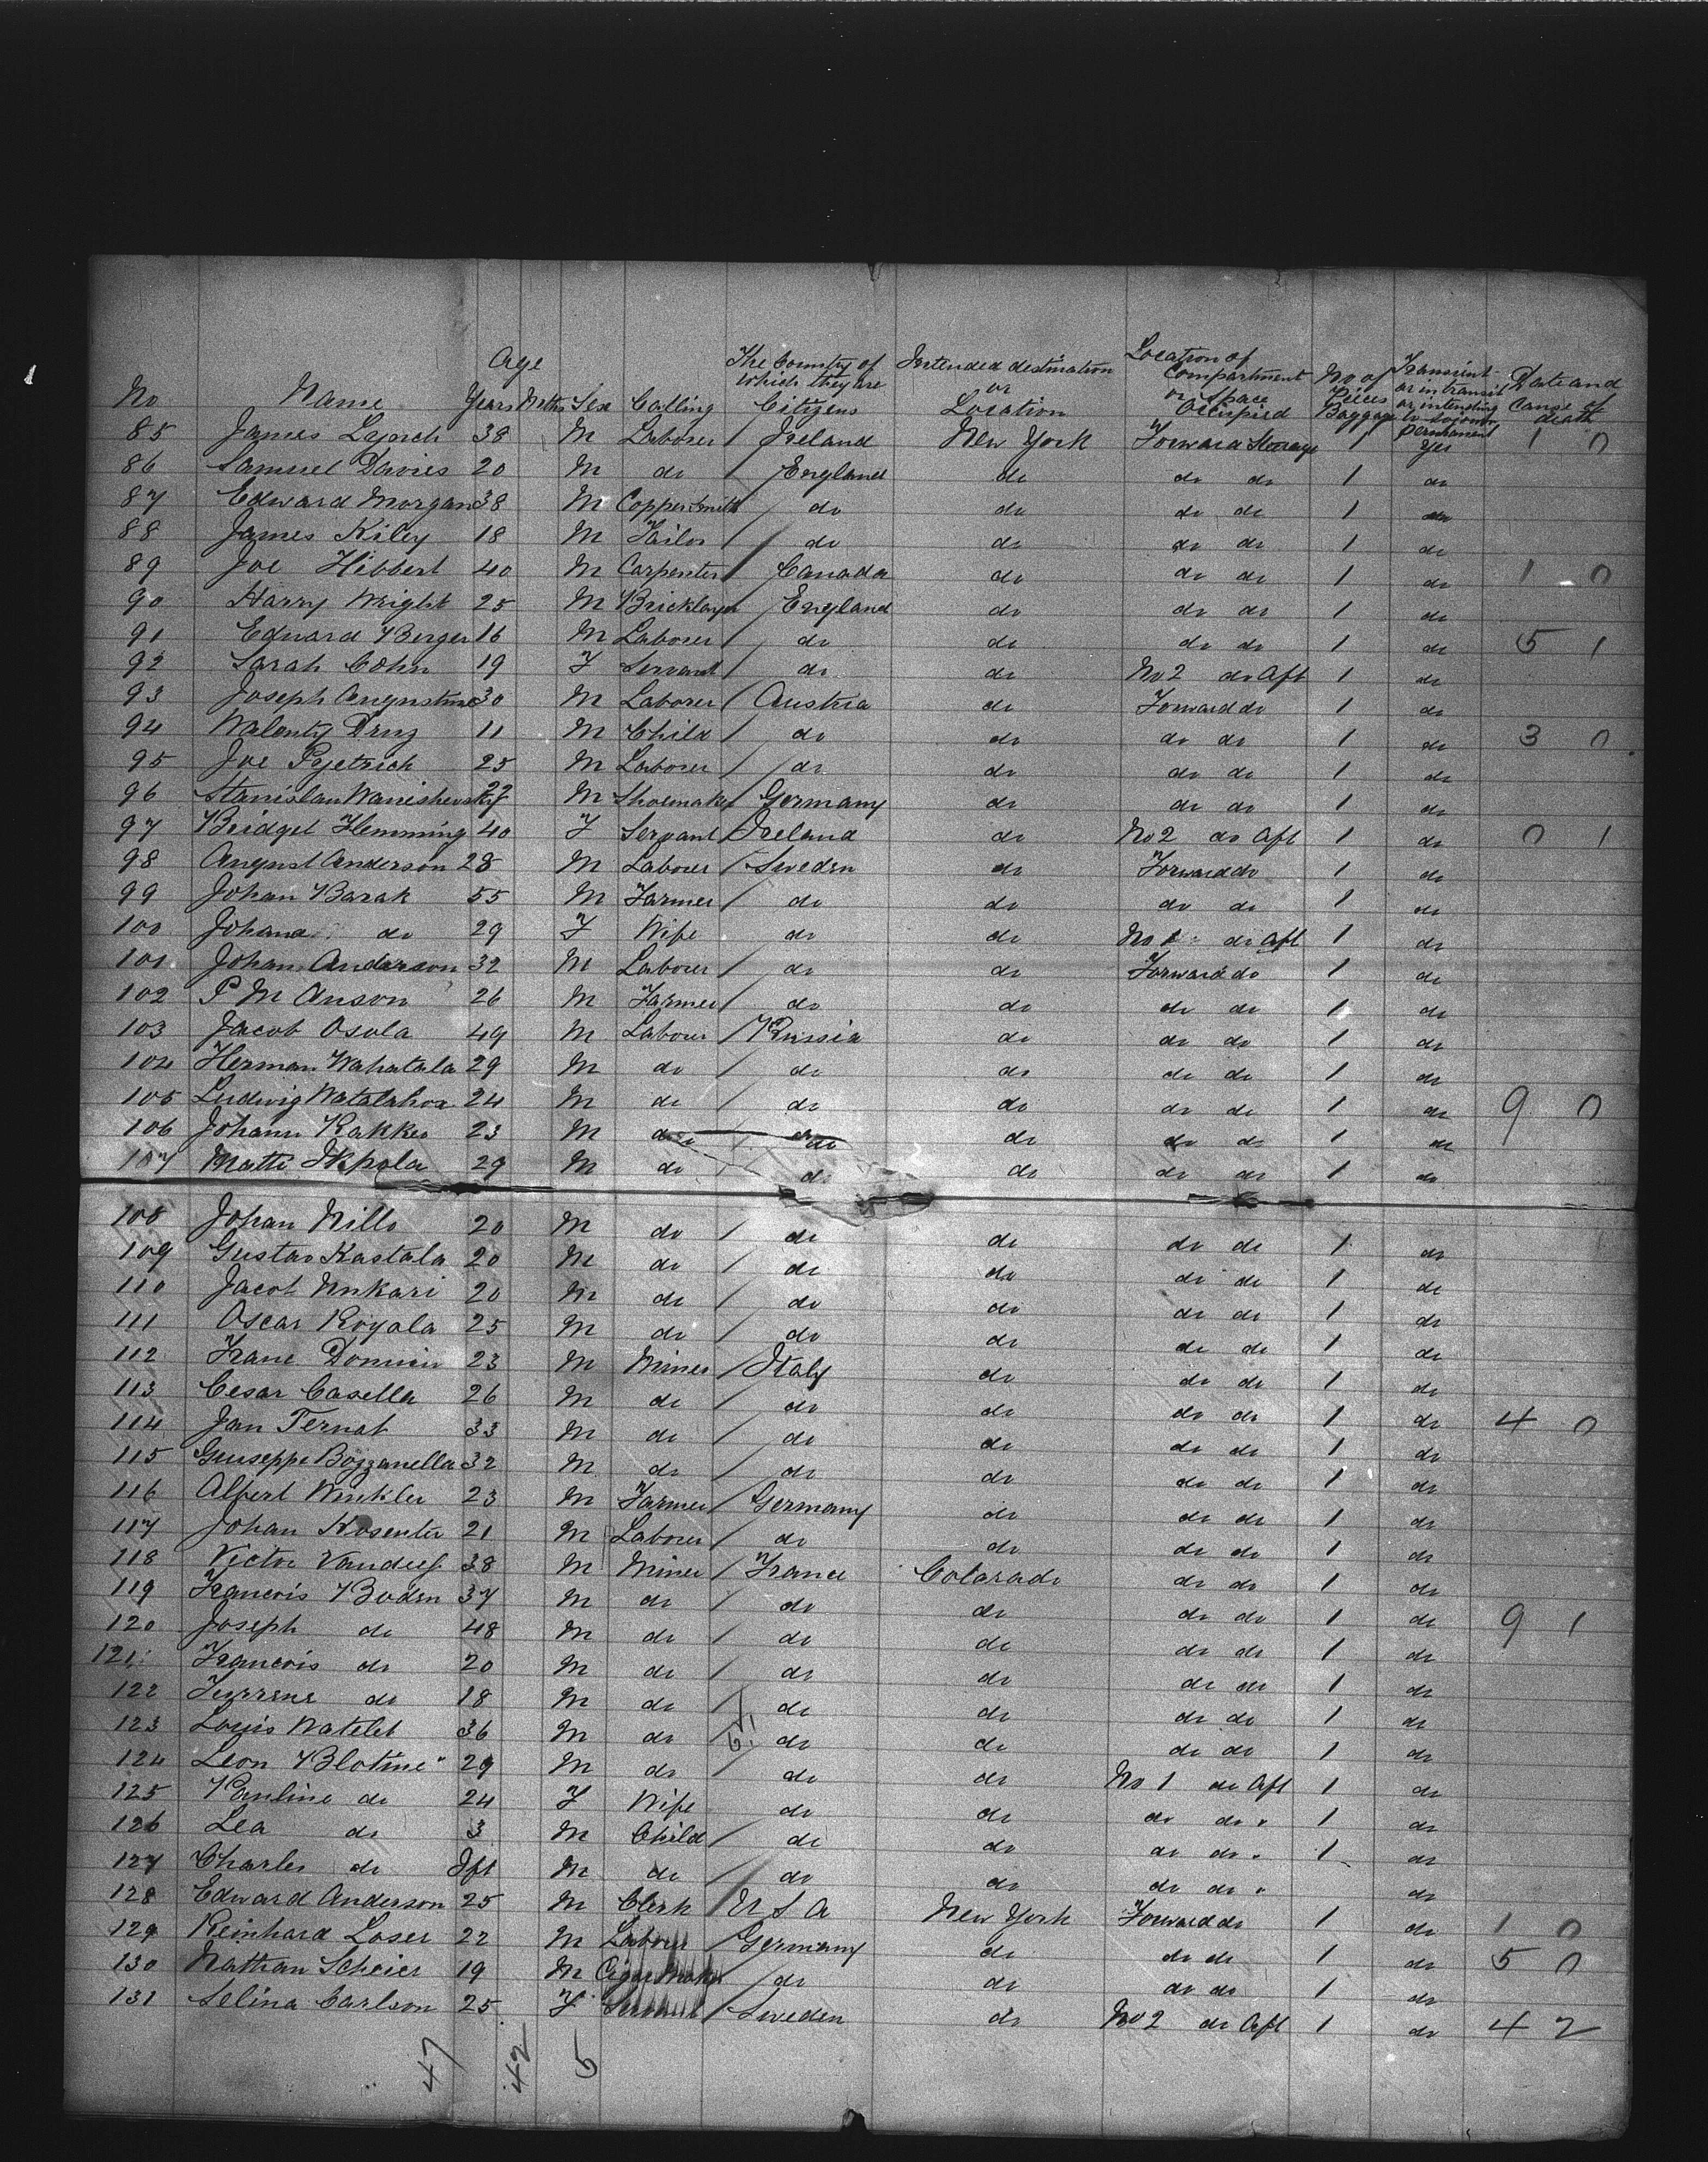 Age
No Name Years Mths Sex Calling The Country of which they are Citizens Intended destination or Location Location of Compartment or Space Occupied No of Pieces Baggage Transient or in transit or intending Permanent Date and Cause of death
85 James Lynch 38 M Laborer / Ireland New York Forward Steerage 1 Yes 1 0
86 Samuel Davies 20 M do / England do do do 1 do
87 Edward Morgan 38 M Coppersmith do do do do 1 do
88 James Kiley 18 M Tailor / do do do do 1 do
89 Joe Hibbert 40 M Carpenter / Canada do do do 1 do 1 0
90 Harry Wright 25 M Bricklayer England do do do 1 do
91 Edward Berger 16 M Laborer / do do do do 1 do 5 1
92 Sarah Cohn 19 F Servant / do do No 2 do Aft 1 do
93 Joseph Augustine 30 M Laborer / Austria do Forward do 1 do
94 Walenty Druz 11 M Child / do do do do 1 do 3 0
95 Joe 25 M Laborer / do do do do 1 do
96 Stanislau 22 M Shoemaker Germany do do do 1 do
97 Bridget Hemming 40 F Servant / Ireland do No 2 do Aft 1 do 0 1
98 August Anderson 28 M Laborer / Sweden do Forward do 1 do
99 Johan Barak 55 M Farmer / do do do do 1 do
100 Johana do 29 F Wife do do No 1 do Aft 1 do
101 Johan Anderson 32 M Laborer / do do Forward do 1 do
102 P M Anson 26 M Farmer / do do do do 1 do
103 Jacob Osola 49 M Labour / Russia do do do 1 do
104 Herman Wahatala 29 M do / do do do do 1 do
105 Ludwig 24 M do / do do do do 1 do 9 0
106 Johann Kakkes 23 M do / do do do do 1 do
107 Matti 29 M do / do do do do 1 do
108 Johan Nillo 20 M do / do do do do 1 do
109 Gustav Kastala 20 M do / do do do do 1 do
110 Jacob 20 M do / do do do do 1 do
111 Oscar Royola 25 M do / do do do do 1 do
112 23 M Miner / Italy do do do 1 do
113 Cesar Casella 26 M do / do do do do 1 do
114 Jan Ternat 33 M do / do do do do 1 do 4 0
115 Giuseppe Bozzanella 32 M do / do do do do 1 do
116 Albert Winkler 23 M Farmer / Germany do do do 1 do
117 Johan Kosenter 21 M Laborer / do do do do 1 do
118 Victor 38 M Miner / France Colorado do do 1 do
119 Francois Boden 37 M do / do do do do 1 do 9 1
120 Joseph do 48 M do / do do do do 1 do
121 Francois do 20 M do / do do do do 1 do
122 do 18 M do / do do do do 1 do
123 Louis Watelet 36 M do do do do do 1 do
124 Leon Blotine 29 M do / do do No 1 do Aft 1 do
125 Pauline do 24 F Wife do do do do " 1 do
126 Lea do 3 M Child / do do do do " 1 do
127 Charles do Ift M do / do do do do " do
128 Edward Anderson 25 M Clerk / U S A New York Forward do 1 do 1 0
129 Reinhard Loser 22 M Labour / Germany do do do 1 do 5 0
130 Nathan Scheier 19 M Cigar Maker / do do do do 1 do
131 Selina Carlson 25 F Servant / Sweden do No 2 do Aft 1 do 4 2
47 42 5